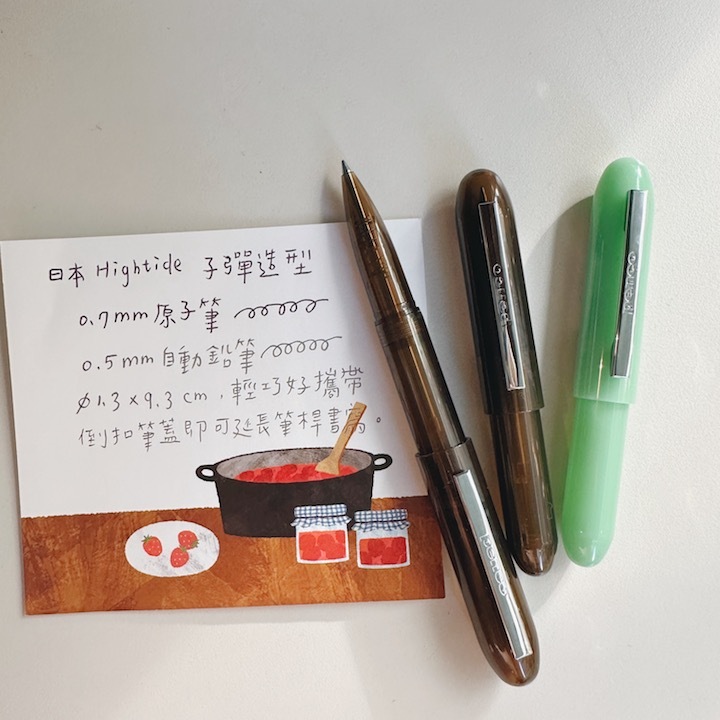 日本 Hightide 子彈造型
0.7mm 原子筆
0.5mm 自動鉛筆
φ1.3×9.3cm，輕巧好攜帶
倒扣筆蓋即可延長筆桿書寫。
penco
penco
penco